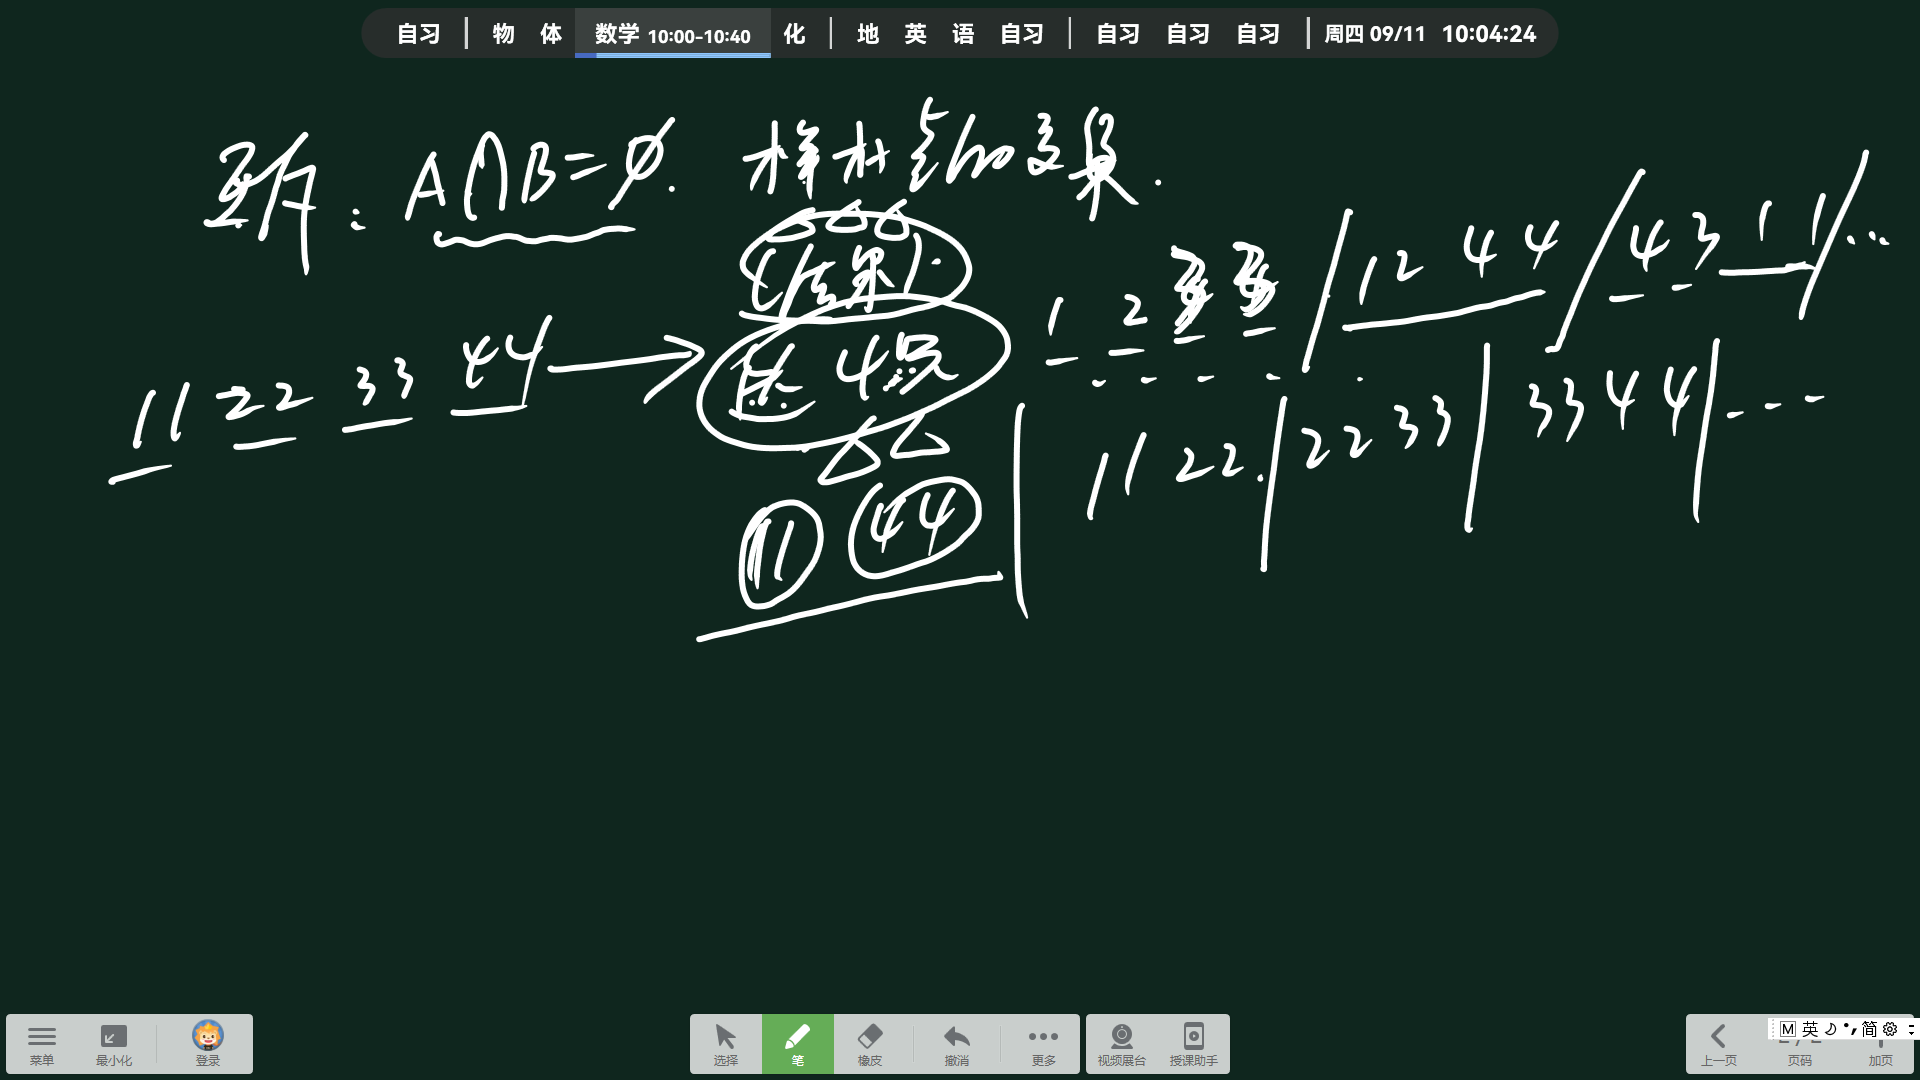 自习 | 物 体 数学 10:00-10:40 化 | 地 英 语 自习 | 自习 自习 自习 | 周四 09/11 10:04:24
互斥: A∩B=∅. 样本点的交集.
(结果).
11 22 33 44 → 选 4只
1 2 3 3 / 1 2 4 4 / 4 3 1 1 / ...
11 44
11 22. | 22 33 | 33 44 | ---
菜单 最小化 登录
选择 笔 橡皮 撤消 更多
视频展台 授课助手
上一页 页码 加页
M 英 简